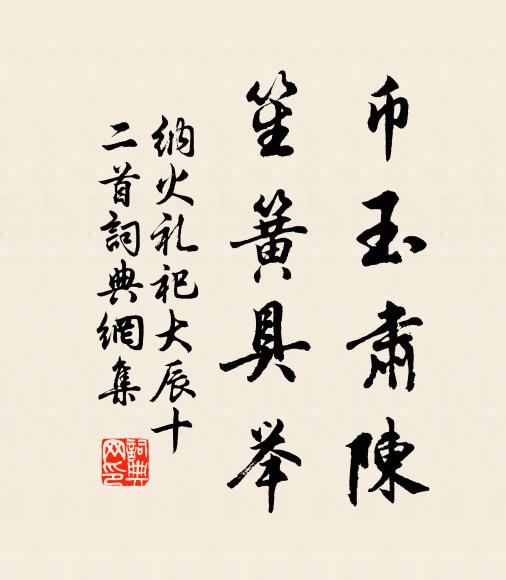 币玉肅陳
笙簧具举
纳火礼祀大辰十
二首詞典網集
詞典
网印